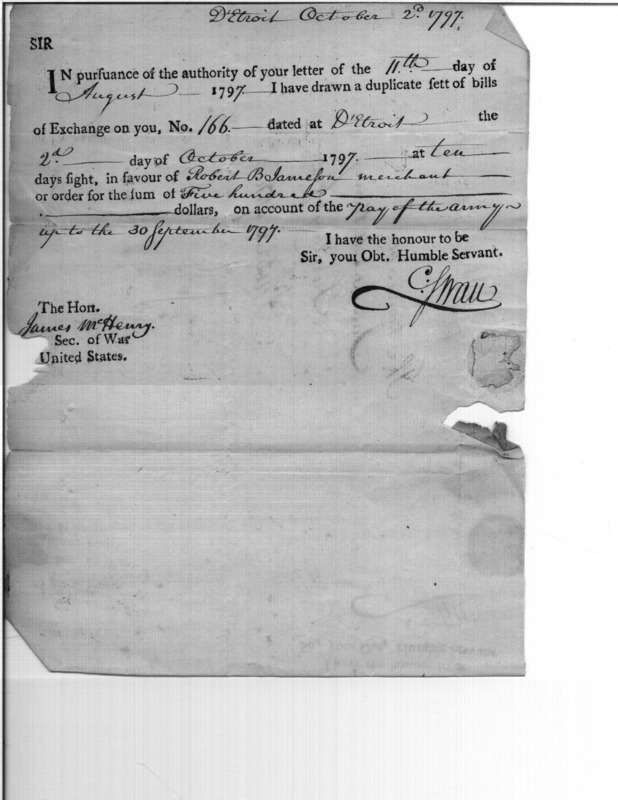 D'Etroit October 2d. 1797.
SIR
IN pursuance of the authority of your letter of the 11th. day of
August 1797 I have drawn a duplicate sett of bills
of Exchange on you, No. 166. dated at D'Etroit the
2d. day of October 1797. at ten
days sight, in favour of Robert B Jameson merchant
or order for the sum of Five hundred
dollars, on account of the pay of the army
up to the 30 September 1797.
I have the honour to be
Sir, your Obt. Humble Servant.
C. Swan
The Hon.
James McHenry.
Sec. of War
United States.